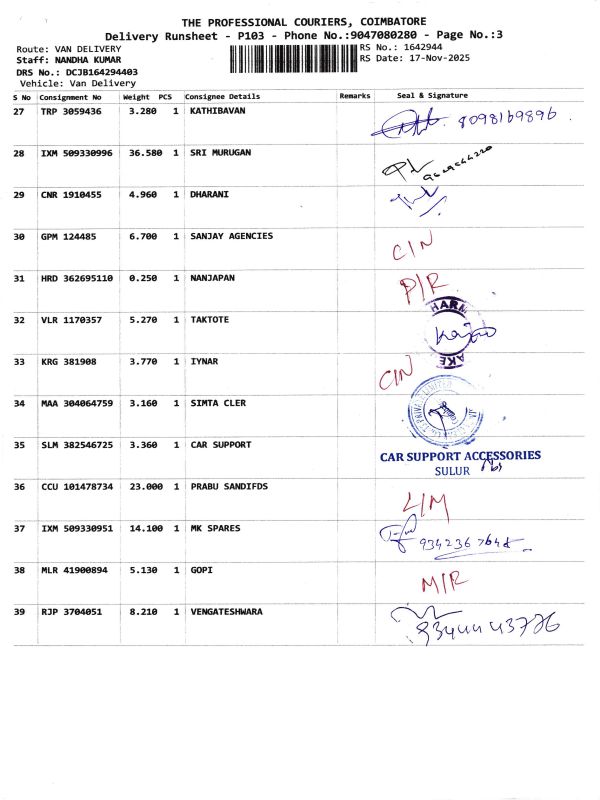 THE PROFESSIONAL COURIERS, COIMBATORE
Delivery Runsheet - P103 - Phone No.:9047080280 - Page No.:3
Route: VAN DELIVERY RS No.: 1642944
Staff: NANDHA KUMAR RS Date: 17-Nov-2025
DRS No.: DCJB164294403
Vehicle: Van Delivery
S No Consignment No Weight PCS Consignee Details Remarks Seal & Signature
27 TRP 3059436 3.280 1 KATHIBAVAN 8098169896
28 IXM 509330996 36.580 1 SRI MURUGAN
29 CNR 1910455 4.960 1 DHARANI
30 GPM 124485 6.700 1 SANJAY AGENCIES C/N
31 HRD 362695110 0.250 1 NANJAPAN P/R
32 VLR 1170357 5.270 1 TAKTOTE
33 KRG 381908 3.770 1 IYNAR C/N
34 MAA 304064759 3.160 1 SIMTA CLER
35 SLM 382546725 3.360 1 CAR SUPPORT CAR SUPPORT ACCESSORIES
SULUR
36 CCU 101478734 23.000 1 PRABU SANDIFDS L/M
37 IXM 509330951 14.100 1 MK SPARES
38 MLR 41900894 5.130 1 GOPI M/R
39 RJP 3704051 8.210 1 VENGATESHWARA